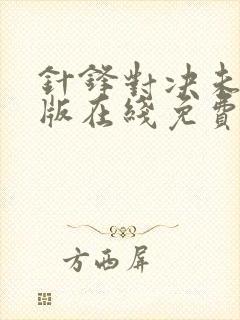 針鋒對決未
版在綫免費
方西屏